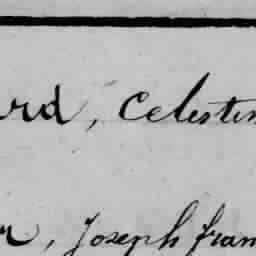 rd, Celestin
r, Joseph fran